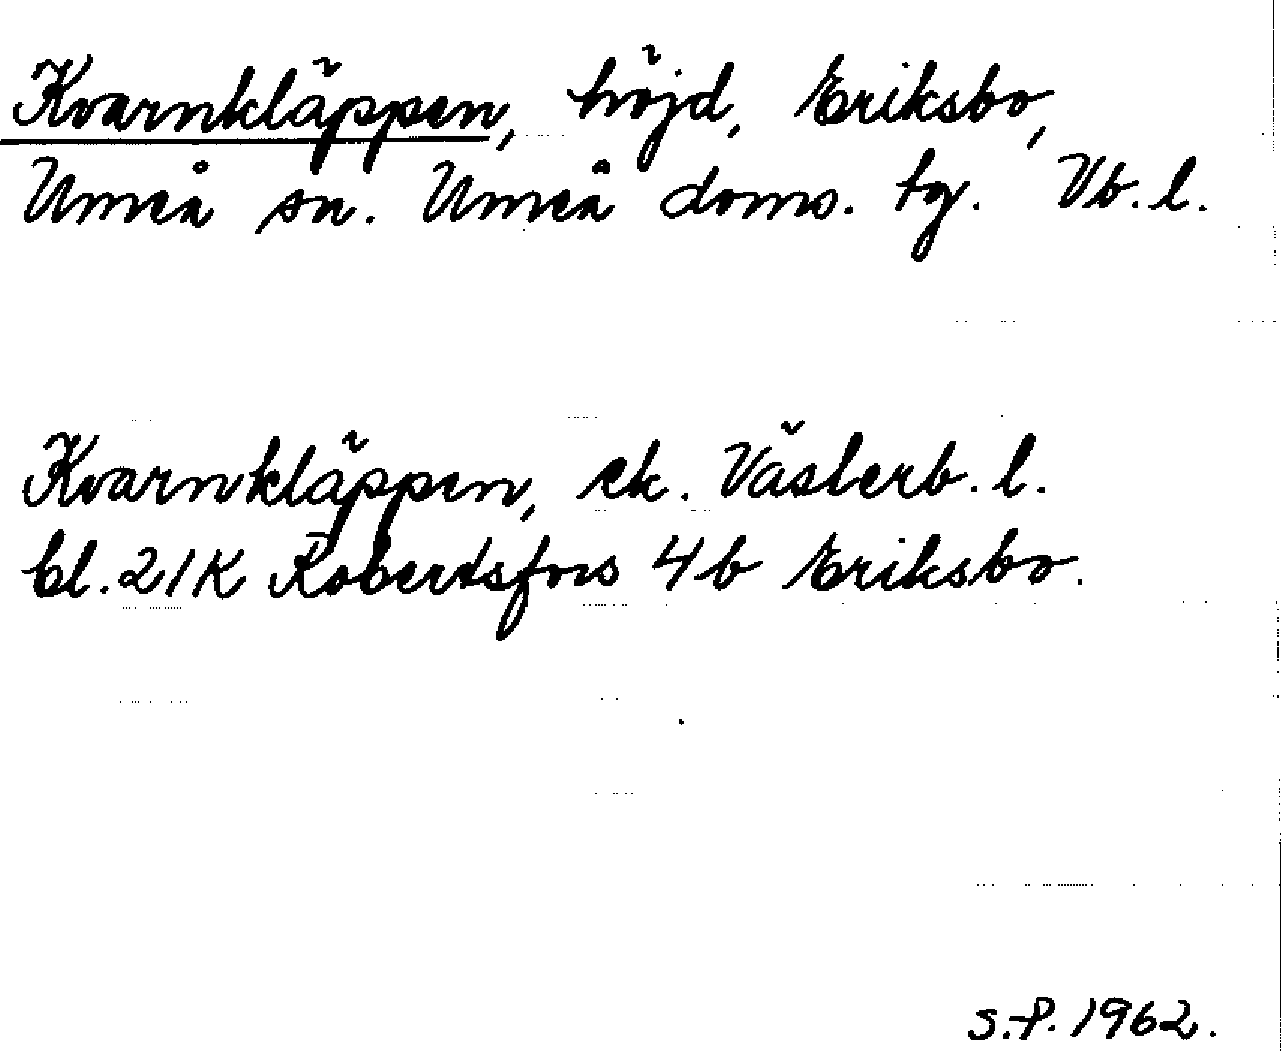 Kvarnkläppen, höjd, Eriksbo,
Umeå sn. Umeå doms. tg. Vb. l.
Kvarnkläppen, ek. Västerb. l.
bl. 21K Robertsfors 4b Eriksbo.
S.P. 1962.